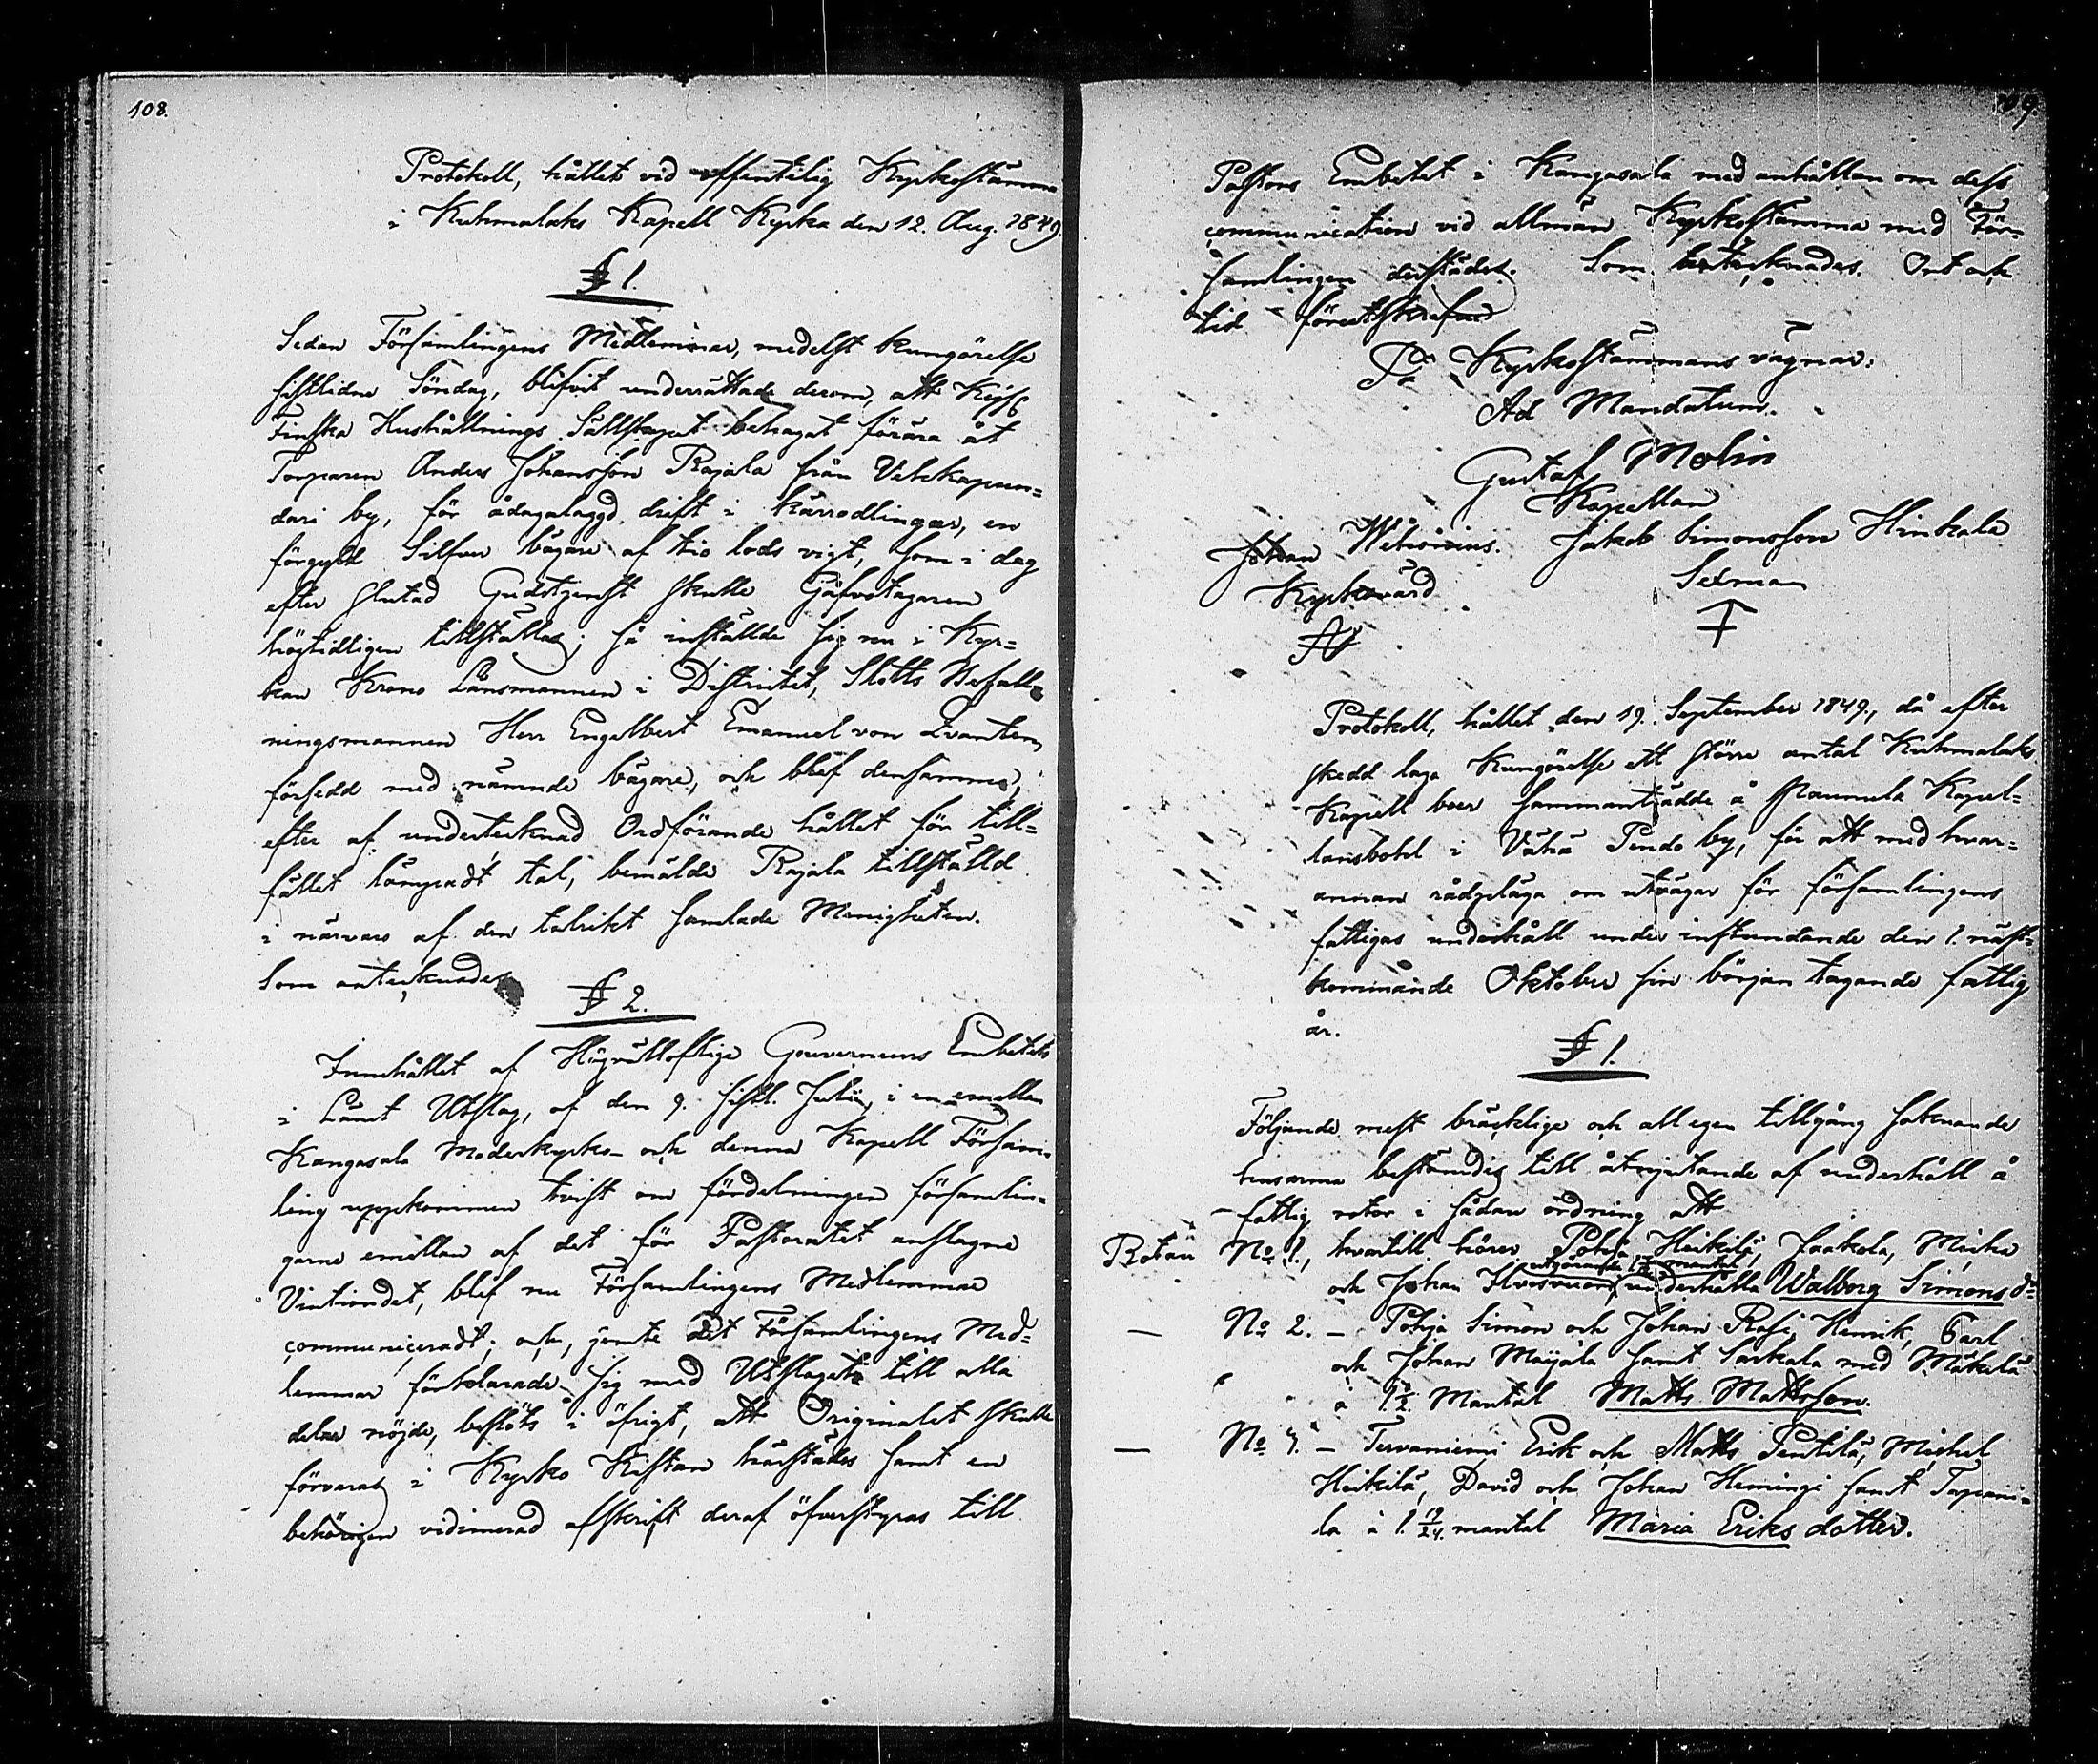 108.
Protokoll, hållet vid offentelig Kyrkostämma
i Kuhmalaks Kapell Kyrka den 12. Aug. 1849.
§ 1.
Sedan Församlingens Medlemmar, medelst kungörelse
sistlidne Söndag, blifvit underrättade derom, att Kejs.
Finska Hushållnings Sällskapet behagat förära åt
Torparen Anders Johansson Rajala från Vehkapun=
dari by, för ådagalaggd drift i kärrodlingar, en
förgyld Silfver bägare af tio lods vigt, som i dag
efter slutad Gudstjenst skulle Gåfvotagaren
högtidligen tillställas; så inställde sig nu i Kyr=
kan Krono Länsmannen i Distriktet, Slotts Befall=
ningsmannen Herr Engelbert Emanuel von Qvanten,
försedd med nämnde bägare, och blef densamma,
efter af undertecknad Ordförande hållet för till=
fället lämpadt tal, bemälde Rajala tillställd
i närvaro af den talrikt samlade Menigheten.
Som antecknades
§ 2.
Innehållet af Högvälloflige Gouverneurs Embetets
i Länet Utslag, af den 9. sistl. Julii, i en emellan
Kangasala Moderkyrko- och denna Kapell Försam=
ling uppkommen tvist om fördelningen församlin=
garne emellan af det för Pastoratet anslagne
Vintiondet, blef nu Församlingens Medlemmar
communiceradt; och, jemte det Församlingens Med=
lemmar förklarade sig med Utslaget till alla
delar nöjde, beslöts i öfrigt, att Originalet skulle
förvaras i Kyrko Kistan härstädes samt en
behörigen vidimerad afskrift deraf öfverstyras till
109.
Pastors Embetet i Kangasala med anhållan om dess
communication vid allmän Kyrkostämma med För=
samlingen derstädes. Som antecknades. Ort och
tid förutskrefne
På Kyrkostämmans vägnar:
Ad Mandatum.
Gustaf Molin
Kapellan
Johan Jakob Simonsson Hinkala
Kyrkovärd Sexman
Protokoll, hållet den 19. September 1849, då efter
skedd laga Kungörelse ett större antal Kuhmalaks
Kapell boer sammanträdde å Raumula Kapel=
lansbohl i Vähä Pendo by, för att med hvar=
annan rådpläga om utvägar för församlingens
fattigas underhåll under instundande den 1. näst=
kommande Oktober sin början tagande fattig
år.
§ 1.
Följande mest bräcklige och all egen tillgång saknande
husarma bestämdes till åtnjutande af underhåll å
fattig rotor i sådan ordning att
Rotan No 1., hvartill hörer Pohja, Heikilä, Jaakola, Micko
utgörande mantal
och Johan underhålla Walborg Simonsd=
— No 2. — Pohja Simon och Johan Rasi, Henrik, Carl
och Johan Maijala samt Sarkala med Mäkelä
à 1½ Mantal Matts Mattsson.
— No — Tervaniemi Erik och Matts Penttilä, Michel
Heikilä, David och Johan Hemingi samt Tapani=
la à mantal Maria Eriksdotter.